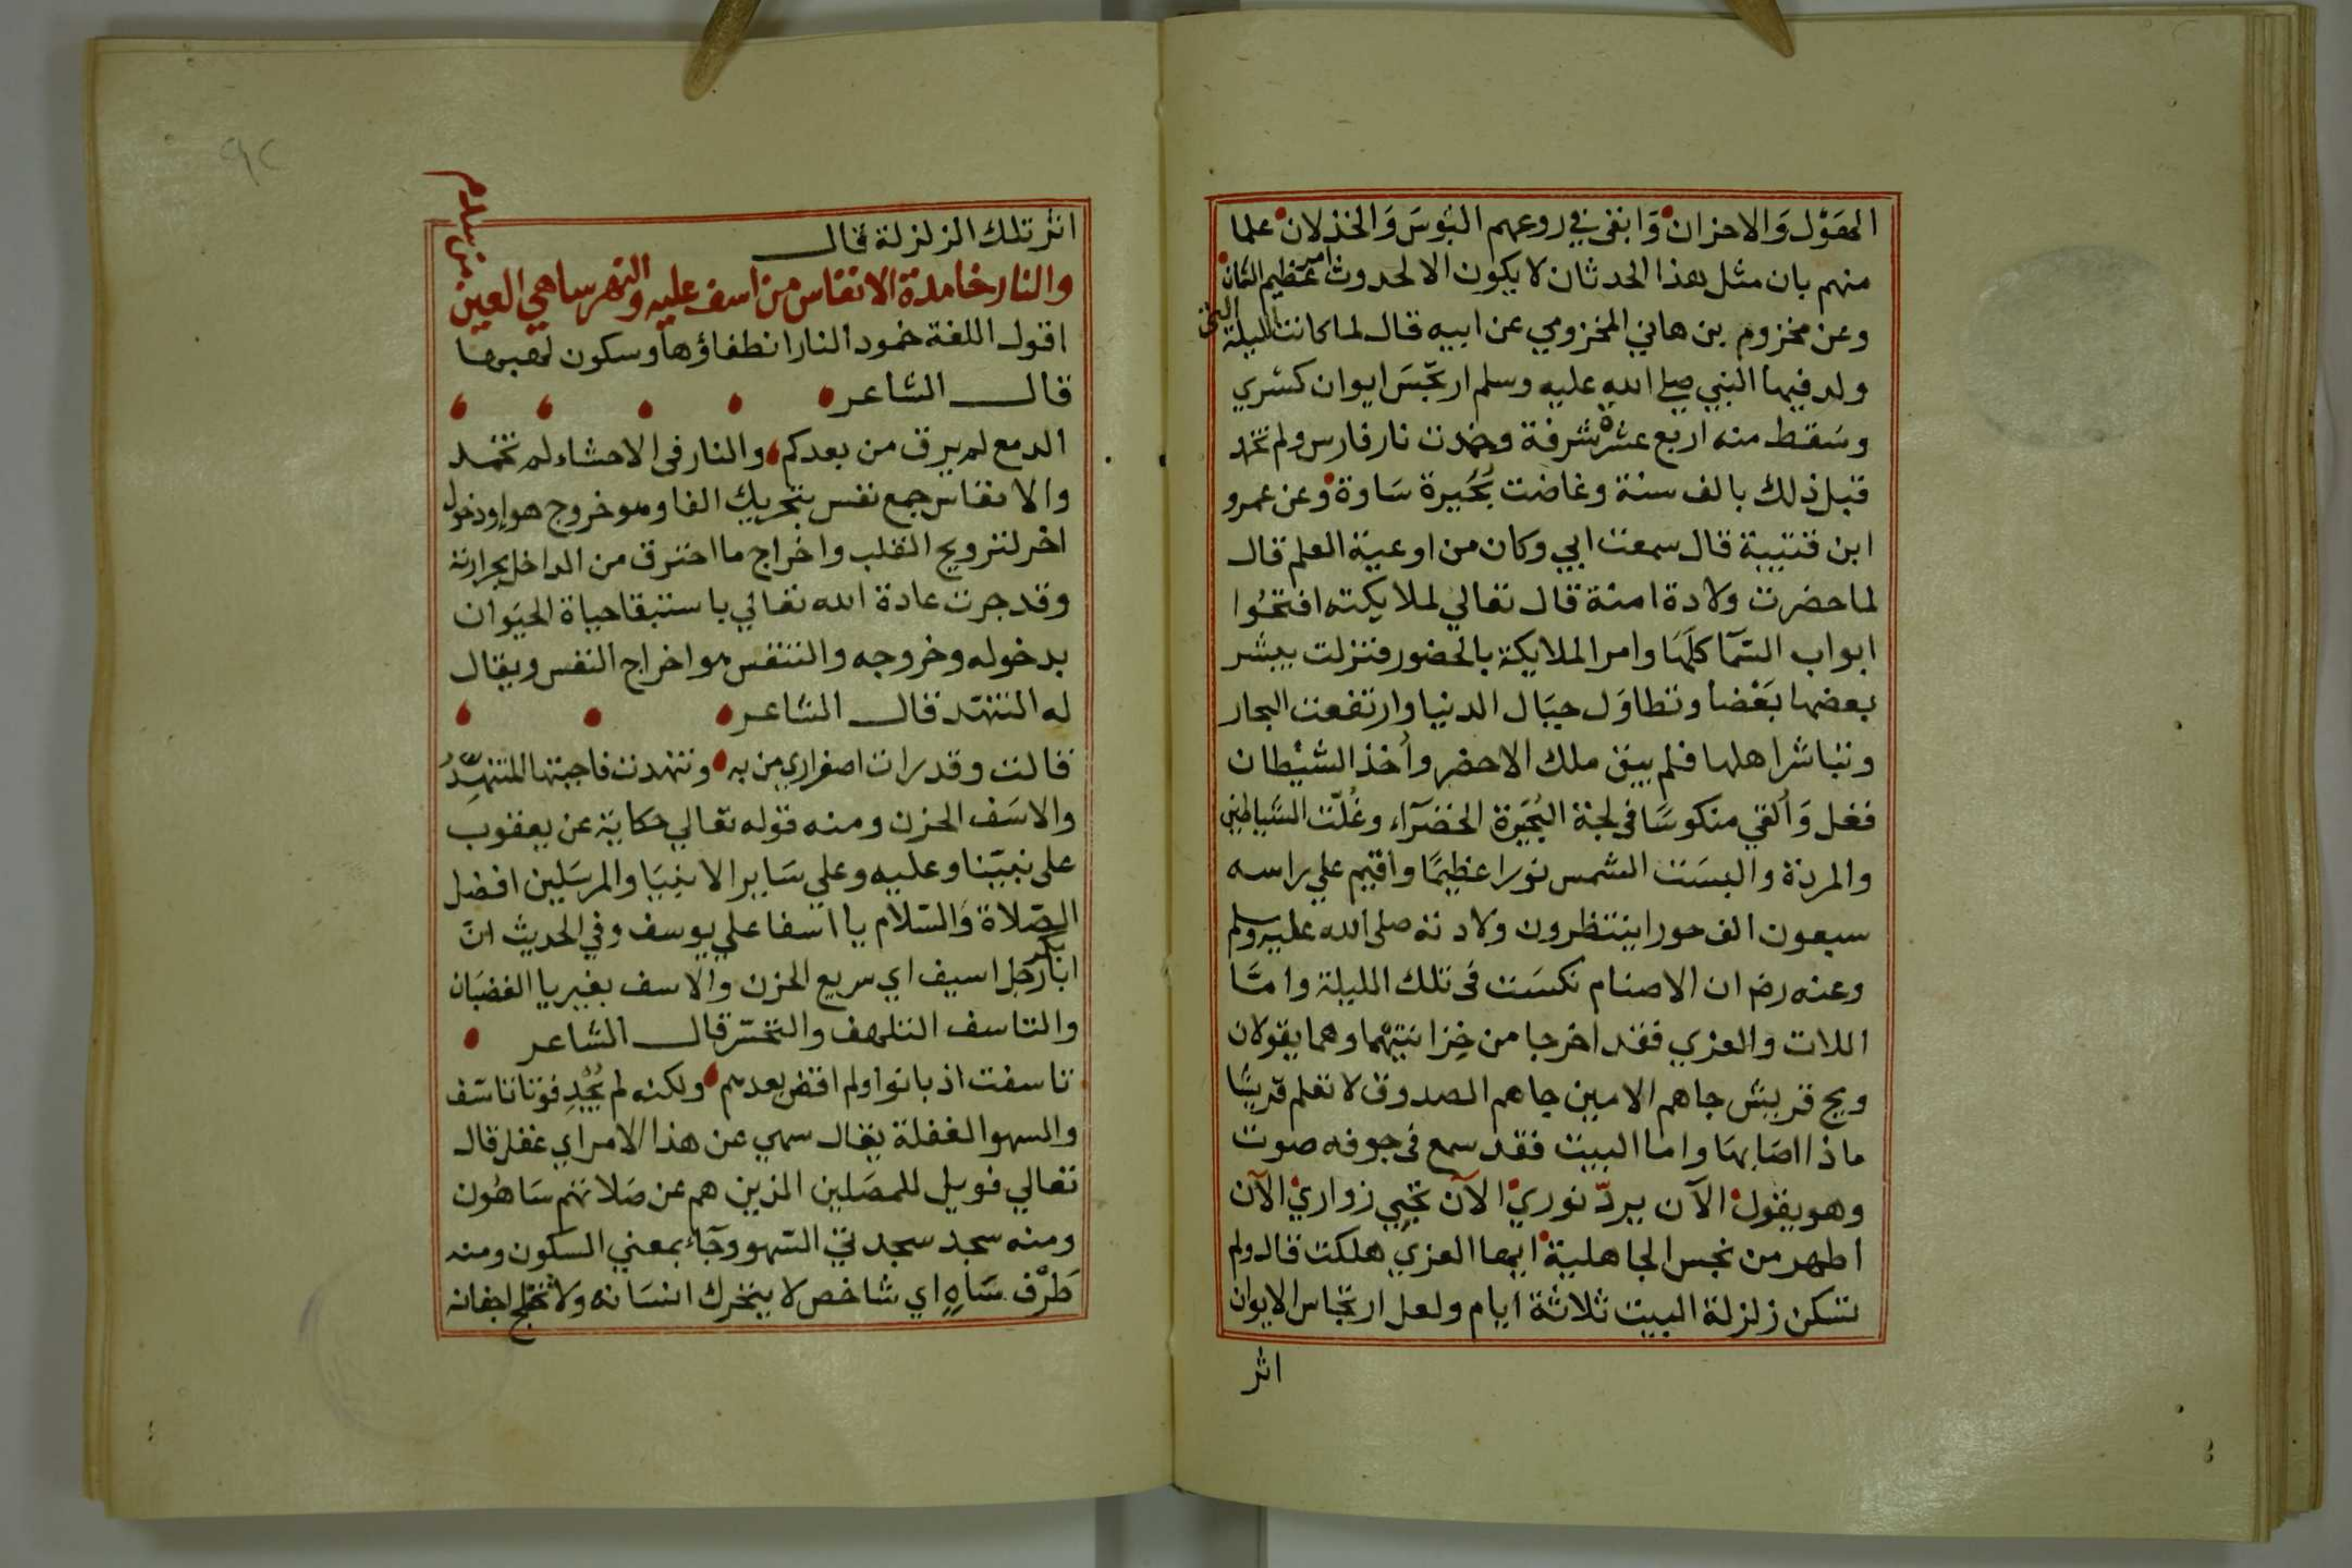 الهَوْل وَالاحزان وَابقي في روعهم البُوسَ وَالخذلان علما
منهم بان مثل هذا الحدثان لا يكون الا لحدوث امر عظيم الشان
وعن مخزوم بن هاني المخزومي عن ابيه قال لما كانت الليلة التي
ولد فيها النبي صلي الله عليه وسلم ارتجّسَ ايوان كسري
وسَقط منه اربع عشرة شرفة وخمدت نار فارس ولم تخمد
قبل ذلك بالف سنة وغاضت بُحَيرة سَاوة وعن عمرو
ابن قتيبة قال سمعت ابي وكان من اوعية العلم قال
لما حضرت ولادة امنة قال تعالي لملايكته افتحُوا
ابواب السّمآ كلّهَا وامر الملايكة بالحضور فنزلت يبشر
بعضها بَعْضا وتطاوَل جبَال الدنيا وارتفعت البحار
وتباشر اهلها فلم يبق ملك الا حضر وأخذ الشيْطان
فغل وَألقي منكوسًا في لجة البُحَيرة الخضرَآء وغُلّت الشياطين
والمردة والبسَت الشمس نورا عظيمًا وأقيم علي راسه
سبعون الف حورا ينتظرون ولادته صلى الله عليه وسلم
وعنه رضي ان الاصنام نكسَت في تلك الليلة وامّا
اللات والعزي فقد اخرجا من خِزانتِهْما وهما يقولان
ويح قريش جاهم الامين جاهم الصدوق لا تعلم قريشا
ماذا اصَابهَا واما البيت فقد سمع في جوفه صوت
وهو يقول الآن يردّ نوري الآن تجيي زواري الآن
اطهر من نجس الجاهلية ايها العزي هلكت قال ولم
تسكن زلزلة البيت ثلاثة ايام ولعل ارتجاس الايوان
اثر
٩٢
اثر تلك الزلزلة قال
والنار خامدة الانفاس من اسف عليه والنهر ساهي العين من سدم
اقول اللغة خمود النار انطفاؤها وسكون لهبها
قال الشاعر
الدمع لم يرق من بعدكم والنار في الاحشاء لم تخمد
والانفاس جمع نفس بتحريك الفا وهو خروج هواء ودخول
اخر لترويح القلب واخراج ما احترق من الداخل بحرارته
وقد جرت عادة الله تعالي باستبقا حياة الحيَوان
بدخوله وخروجه والتنفس هو اخراج النفس ويقال
له التنهّد قال الشاعر
قالت وقد رات اصفراري من به وتنهدت فاجبتها المتنهّدُ
والاسَف الحزن ومنه قوله تعالي حكاية عن يعقوب
على نبيّنا وعليه وعلي سَاير الانبيَا والمرسَلين افضل
الصّلاة وَالسّلام يا اسفا علي يوسف وفي الحديث انّ
ابا بكر رجل اسيف اي سريع الحزن والاسف بغير يا الغضبَان
والتاسف التلهف والتحسّر قال الشاعر
تاسفت اذ بانوا ولم اقض بعدهم ولكنه لم يُجْدِ فوتا تاسّف
والسهو الغفلة يقال سهي عن هذا الامر اي غفل قال
تعالي فويل للمصَلين الذين هم عن صَلاتهم سَاهُون
ومنه سجد سجدتي السّهو وجَآء بمعني السكون ومنه
طَرْف سَاهٍ اي شاخص لا يتحرك انسَانه وَلا تختلج اجفانه